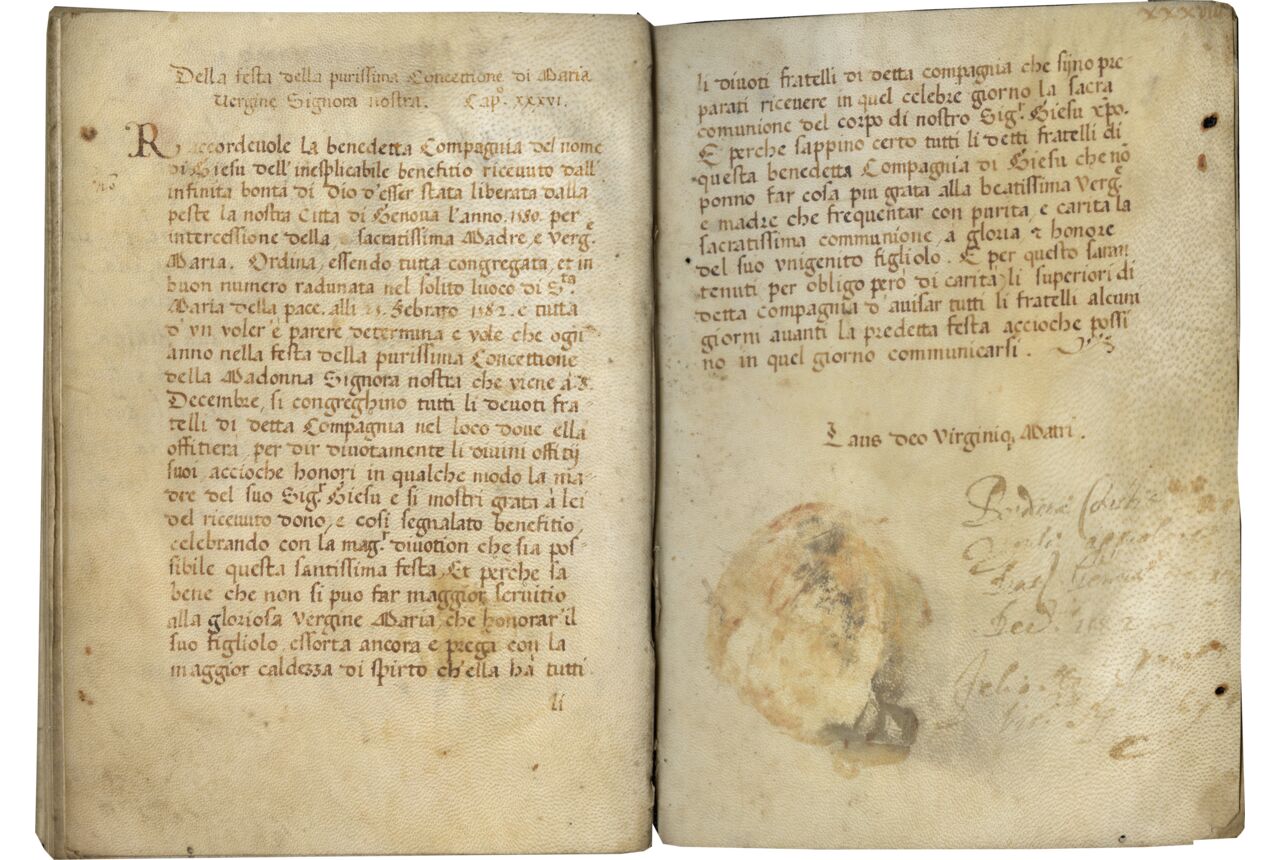 Della festa della purissima Concettione di Maria
Vergine Signora nostra. Cap.º xxxvi.
Raccordeuole la benedetta Compagnia del nome
di Giesu dell' inesplicabile benefitio riceuuto dall'
infinita bontà di Dio d'esser stata liberata dalla
peste la nostra Citta di Genoua l'anno .1580. per
intercessione della sacratissima Madre, e Verg.e
Maria. Ordina, essendo tutta congregata, et in
buon numero radunata nel solito luoco di S.ta
Maria della pace. alli 25. Febraro 1582. e tutta
d' vn voler è parere determina e vole che ogni
anno nella festa della purissima Concettione
della Madonna Signora nostra che viene à 8.
Decembre, si congreghino tutti li deuoti fra
telli di detta Compagnia nel loco doue ella
offitiera, per dir diuotamente li diuini offitij
suoi, accioche honori in qualche modo la ma
dre del suo Sig.r Giesu e si mostri grata à lei
del riceuuto dono, e cosi segnalato benefitio,
celebrando con la mag.r diuotion che sia pos
sibile questa santissima festa, Et perche sa
bene che non si puo far maggior seruitio
alla gloriosa vergine Maria, che honorar il
suo figliolo, essorta ancora e prega con la
maggior caldezza di spirto ch'ella ha tutti
li
xxxviii
li diuoti fratelli di detta compagnia che sijno pre
parati riceuere in quel celebre giorno la sacra
comunione del corpo di nostro Sig.r Giesu xpo.
E perche sappino certo tutti li detti fratelli di
questa benedetta Compagnia di Giesu che nō
ponno far cosa piu grata alla beatissima verg.e
e madre che frequentar con purita, e carita la
sacratissima communione, a gloria & honore
del suo vnigenito figliolo. E per questo saran
tenuti per obligo però di carità) li superiori di
detta compagnia d'auisar tutti li fratelli alcuni
giorni auanti la predetta festa accioche possi
no in quel giorno communicarsi.
Laus deo Virginiq; Matri.